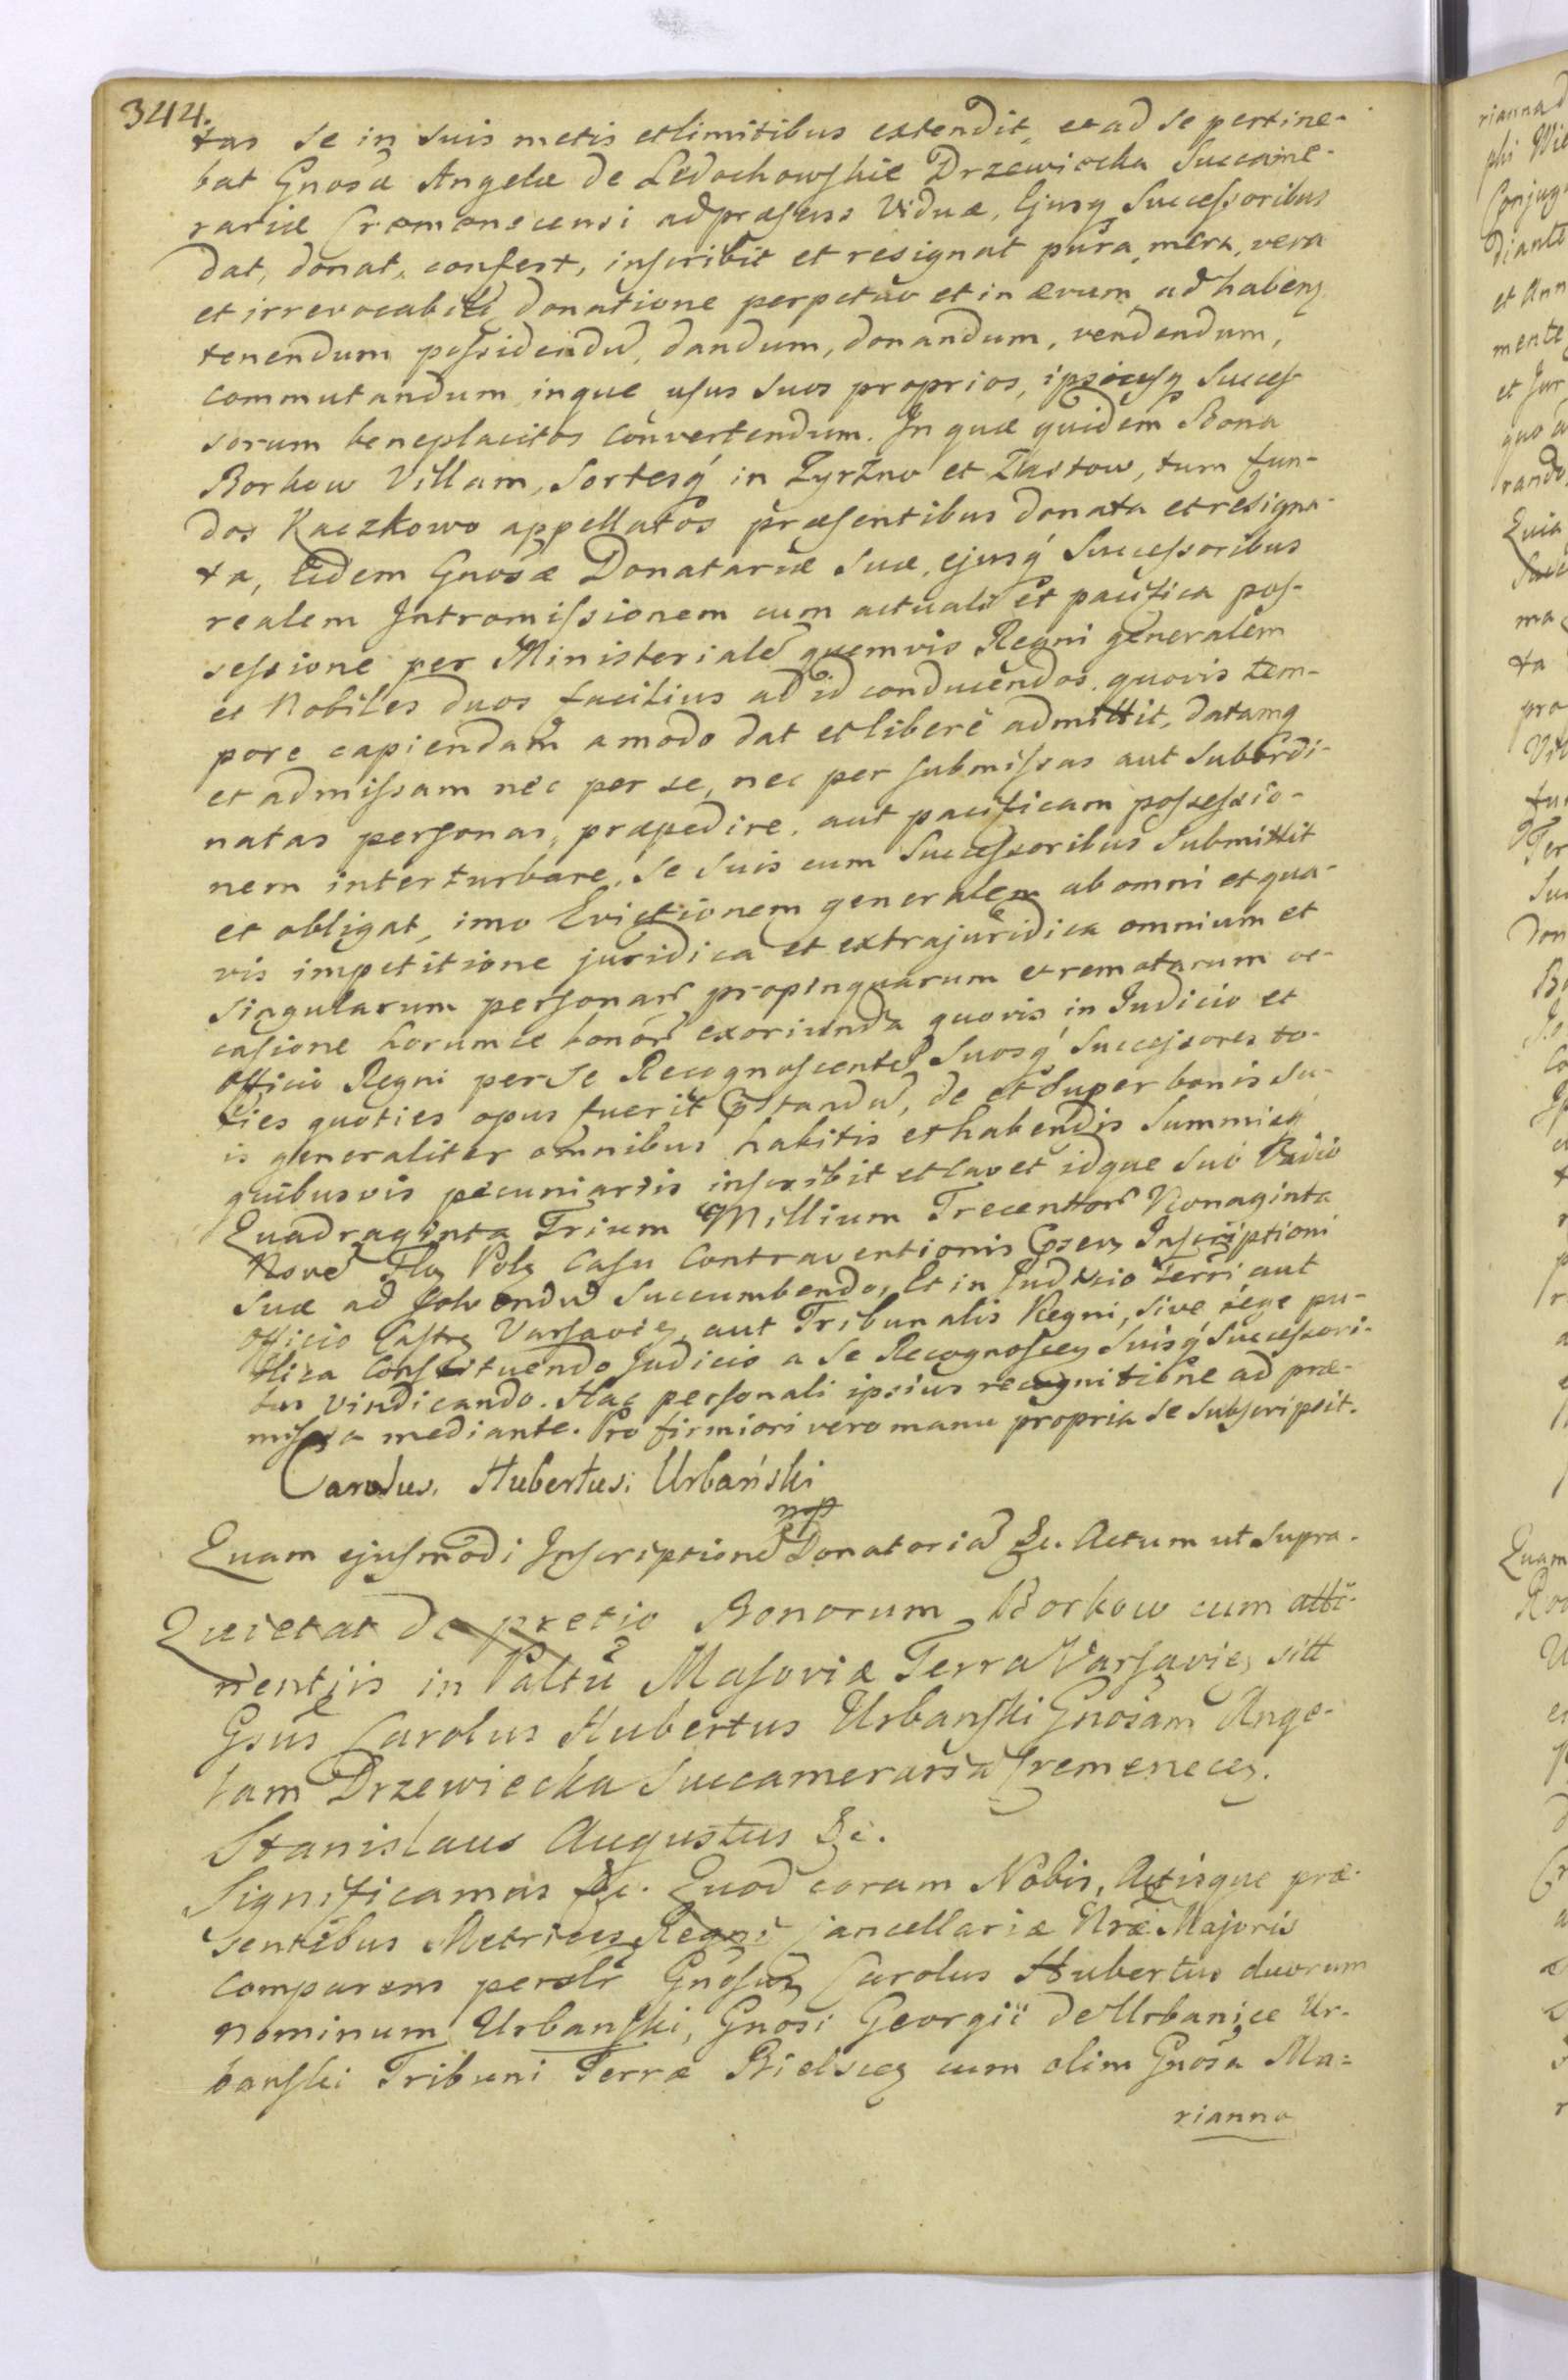 344.
tas se in suis metis et limitibus extendit, et ad se pertine-
bat Gnosæ Angelæ de Ledochowskie Drzewiecka Succame-
rariæ Cremenecensi ad præsens Viduæ, Ejusq Successoribus
dat, donat, confert, inscribit et resignat pura, mera, vera
et irrevocabili donatione perpetuo et in ævum ad habenq
tenendum possidendũ, dandum, donandum, vendendum,
commutandum inque usus suos proprios, ipsiusq Succes-
sorum beneplacitos convertendum. In quæ quidem Bona
Borkow Villam, Sortesq in Zyrzno et Zastow, tum fun-
dos Kaczkowo appellatos præsentibus donata et resigna-
ta, Eidem Gnosæ Donatariæ suæ, ejusq Successoribus
realem Intromissionem cum actuali et pacifica pos-
sessione per Ministerialẽ quemvis Regni generalem
et Nobiles duos facilius ad id conducendos, quovis tem-
pore capiendam amodo dat et libere admittit, datamq
et admissam nec per se, nec per submissas aut subordi-
natas personas, præpedire, aut pacificam possessio-
nem interturbare, se suis cum Successoribus submittit
et obligat, imo Evictionem generalem ab omni et qua-
vis impetitione juridica et extrajuridica omnium et
singularum personarũ propinquarum et remotarum oc-
casione horumce bonorũ exoriunda quovis in Judicio et
Officio Regni per se Recognoscentẽ Suosq Successores to-
ties quoties opus fuerit præstandũ, de et super bonis su-
is generaliter omnibus habitis et habendis Summisq
quibusvis pecuniariis inscribit et cavet idque sub Vadio
Quadraginta Trium Millium Trecentorũ Nonaginta
Novẽ Flq Polq Casu Contraventionis præsenq Inscriptioni
suæ ad solvendũ succumbendo, Et in Judicio Terrĩ aut
Officio Castrq Varsavieq, aut Tribunalis Regni, sive lege pu-
blica Constituendo Judicio a se Recognoscenq suisq Successori-
bus vindicando. Hac personali ipsius recognitione ad præ-
missa mediante. Pro firmiori vero manu propria se subscripsit.
Carolus. Hubertus: Urbański
mp
Quam ejusmodi Inscriptionẽ Donatoriã &c. Actum ut supra.
Quietat de pretio Bonorum Borkow cum atti-
nentiis in Palttũ Masoviæ Terra Varsavieq sitt
Gsus Carolus Hubertus Urbanski Gnosam Ange-
lam Drzewiecka Succamerariã Cremeneceq.
Stanislaus Augustus &c.
Significamus &c. Quod coram Nobis, Actisque præ-
sentibus Metrices Regni Cancellariæ Nræ Majoris
comparens persolr Gnosus Carolus Hubertus duorum
nominum Urbanski, Gnosi Georgii de Urbanice Ur-
banski Tribuni Terræ Bielsceq cum olim Gnosa Ma=
rianna